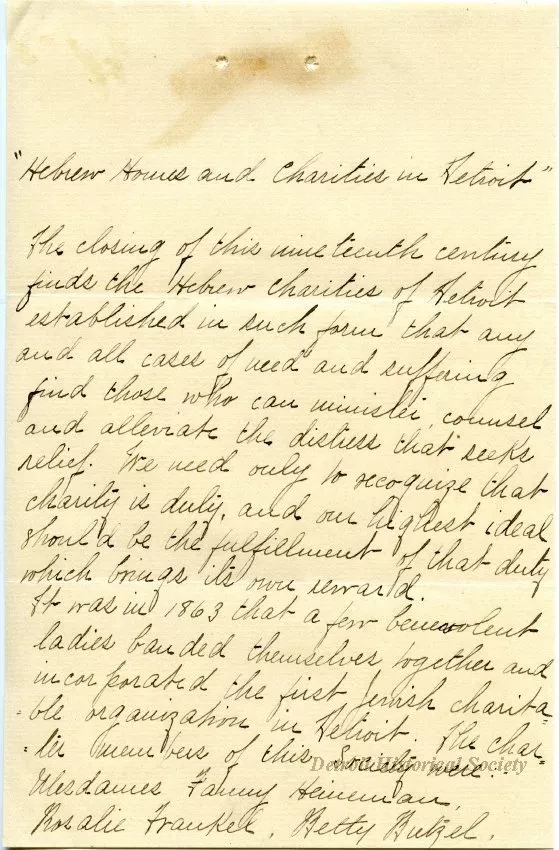 "Hebrew Homes and Charities in Detroit"
The closing of this nineteenth century
finds the Hebrew Charities of Detroit
established in such form that any
and all cases of need and suffering
find those who can minister, counsel
and alleviate the distress that seeks
relief. We need only to recognize that
charity is duty, and our highest ideal
should be the fulfillment of that duty
which brings its own reward.
It was in 1863 that a few benevolent
ladies banded themselves together and
incorporated the first Jewish charita=
=ble organization in Detroit. The char=
=ter members of this Society were
Detroit Historical Society
Mesdames Fanny Heineman,
Rosalie Frankel, Betty Butzel,